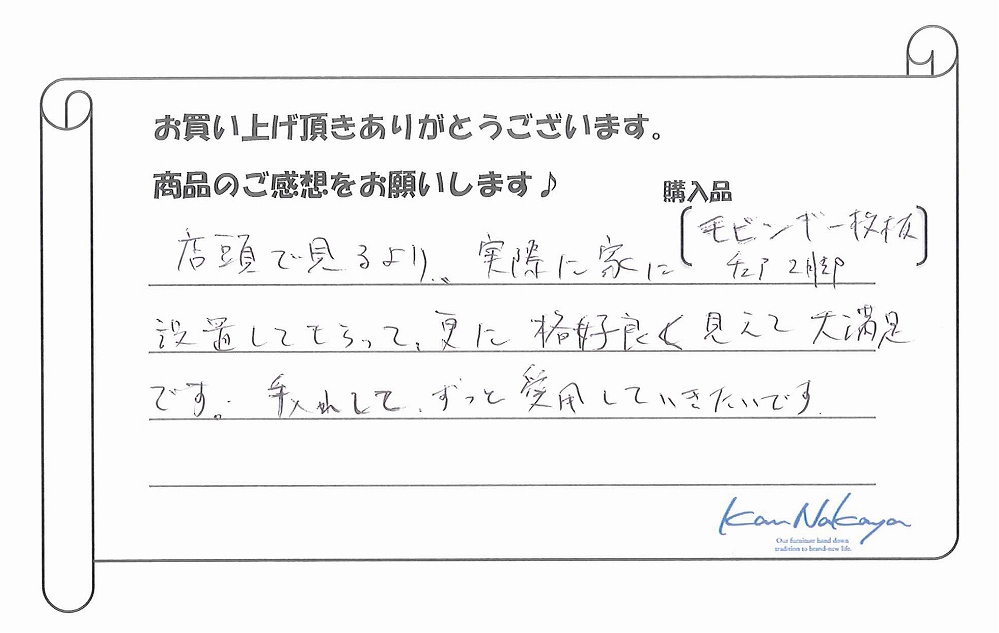 お買い上げ頂きありがとうございます。
商品のご感想をお願いします♪
購入品
モビンギー一枚板
チェア 2脚
店頭で見るより、実際に家に
設置してもらって、更に格好良く見えて大満足
です。手入れして、ずっと愛用していきたいです。
Kan Nakaya
Our furniture hand down
tradition to brand-new life.